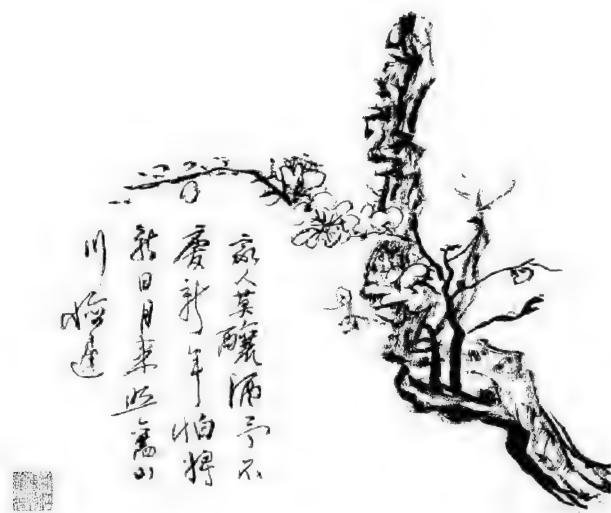 家人莫釀酒予不
慶新年怕將
新日月來照舊山
川